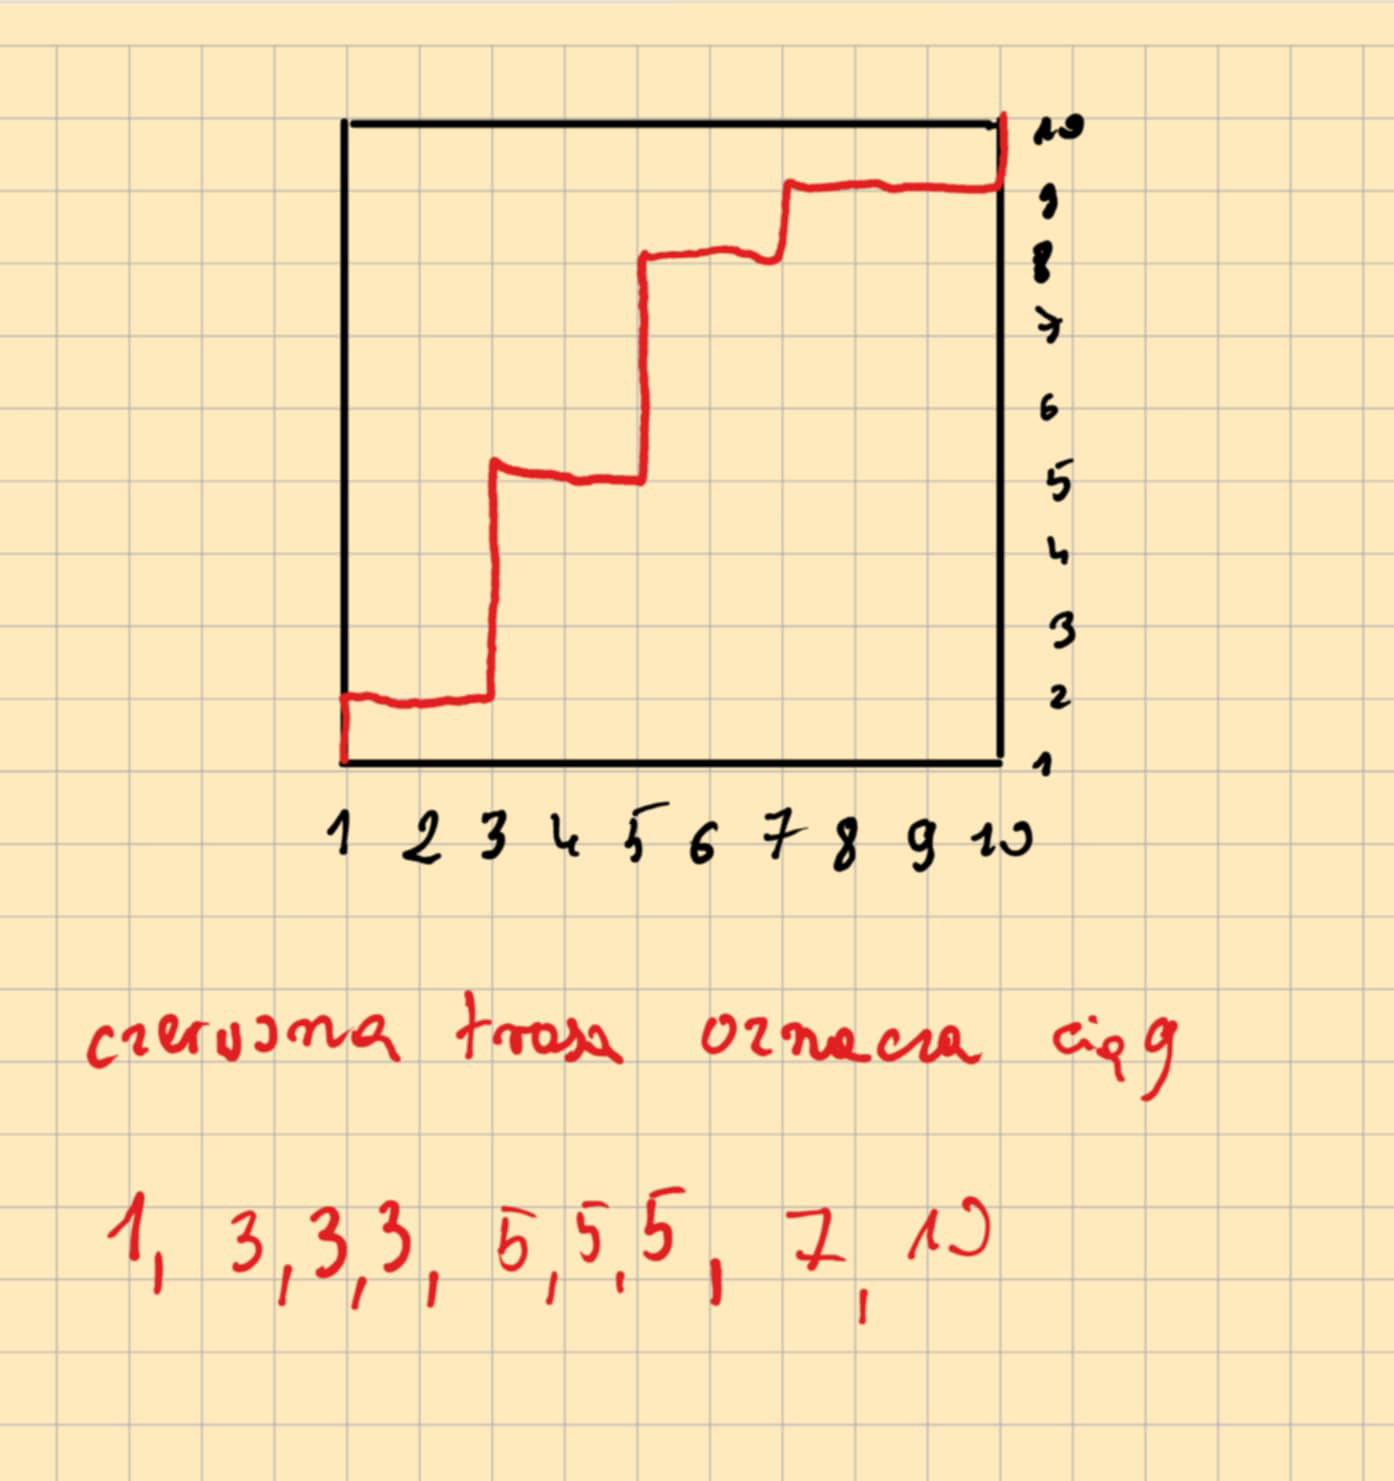 10
9
8
7
6
5
4
3
2
1
1 2 3 4 5 6 7 8 9 10
czerwona trasa oznacza ciąg
1, 3, 3, 3, 5, 5, 5, 7, 10